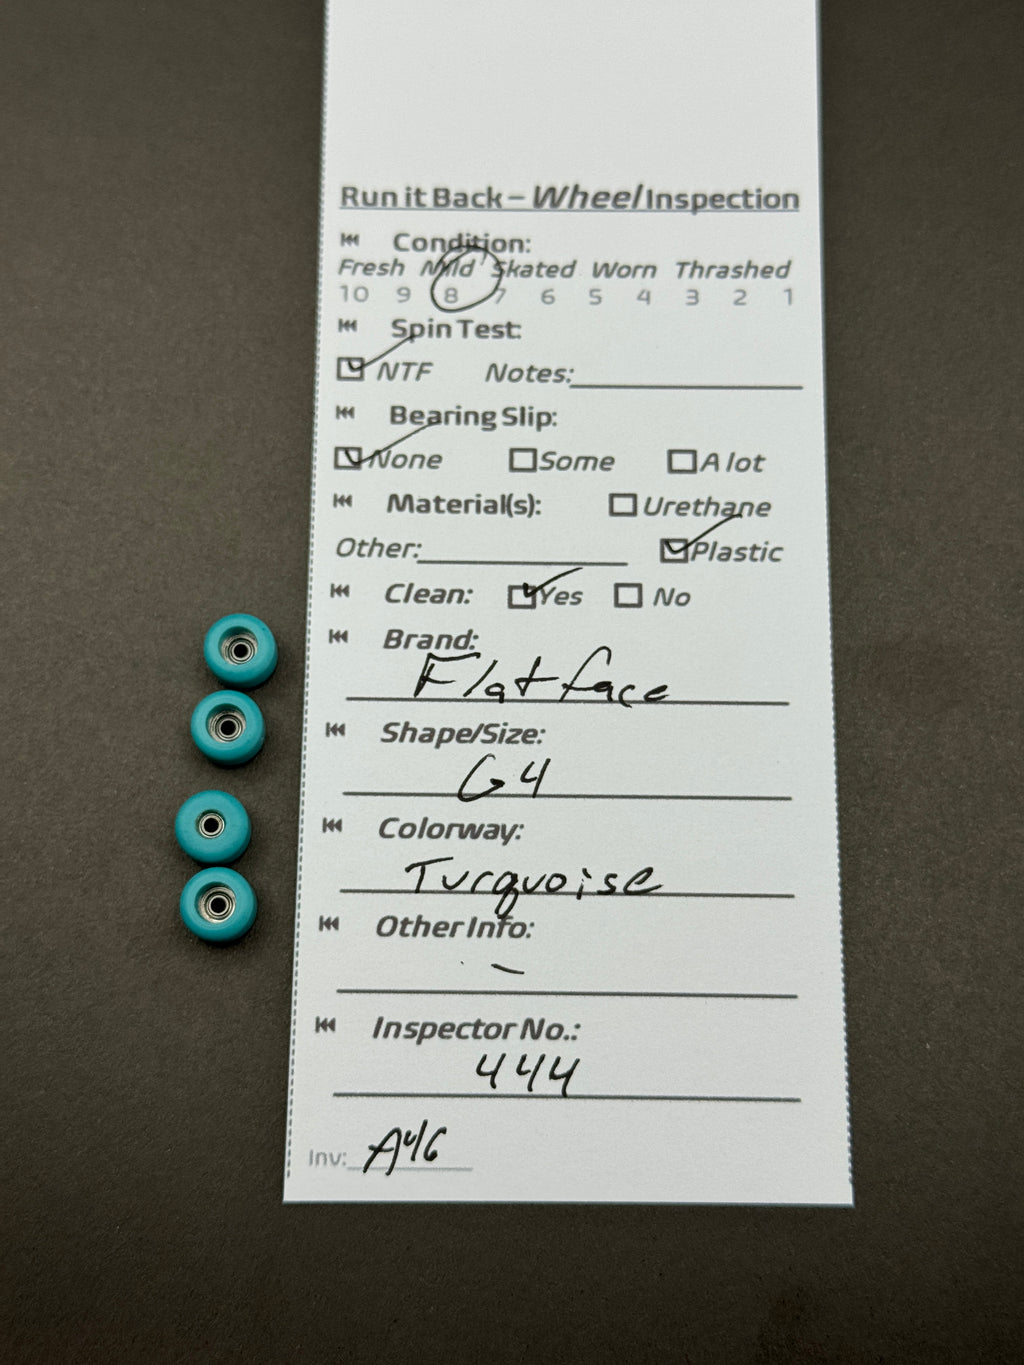 Run it Back – Wheel Inspection
Condition:
Fresh Mild Skated Worn Thrashed
10 9 8 7 6 5 4 3 2 1
Spin Test:
NTF Notes:
Bearing Slip:
None Some A lot
Material(s): Urethane
Other: Plastic
Clean: Yes No
Brand:
Flatface
Shape/Size:
G4
Colorway:
Turquoise
Other Info:
–
Inspector No.:
444
Inv: A46